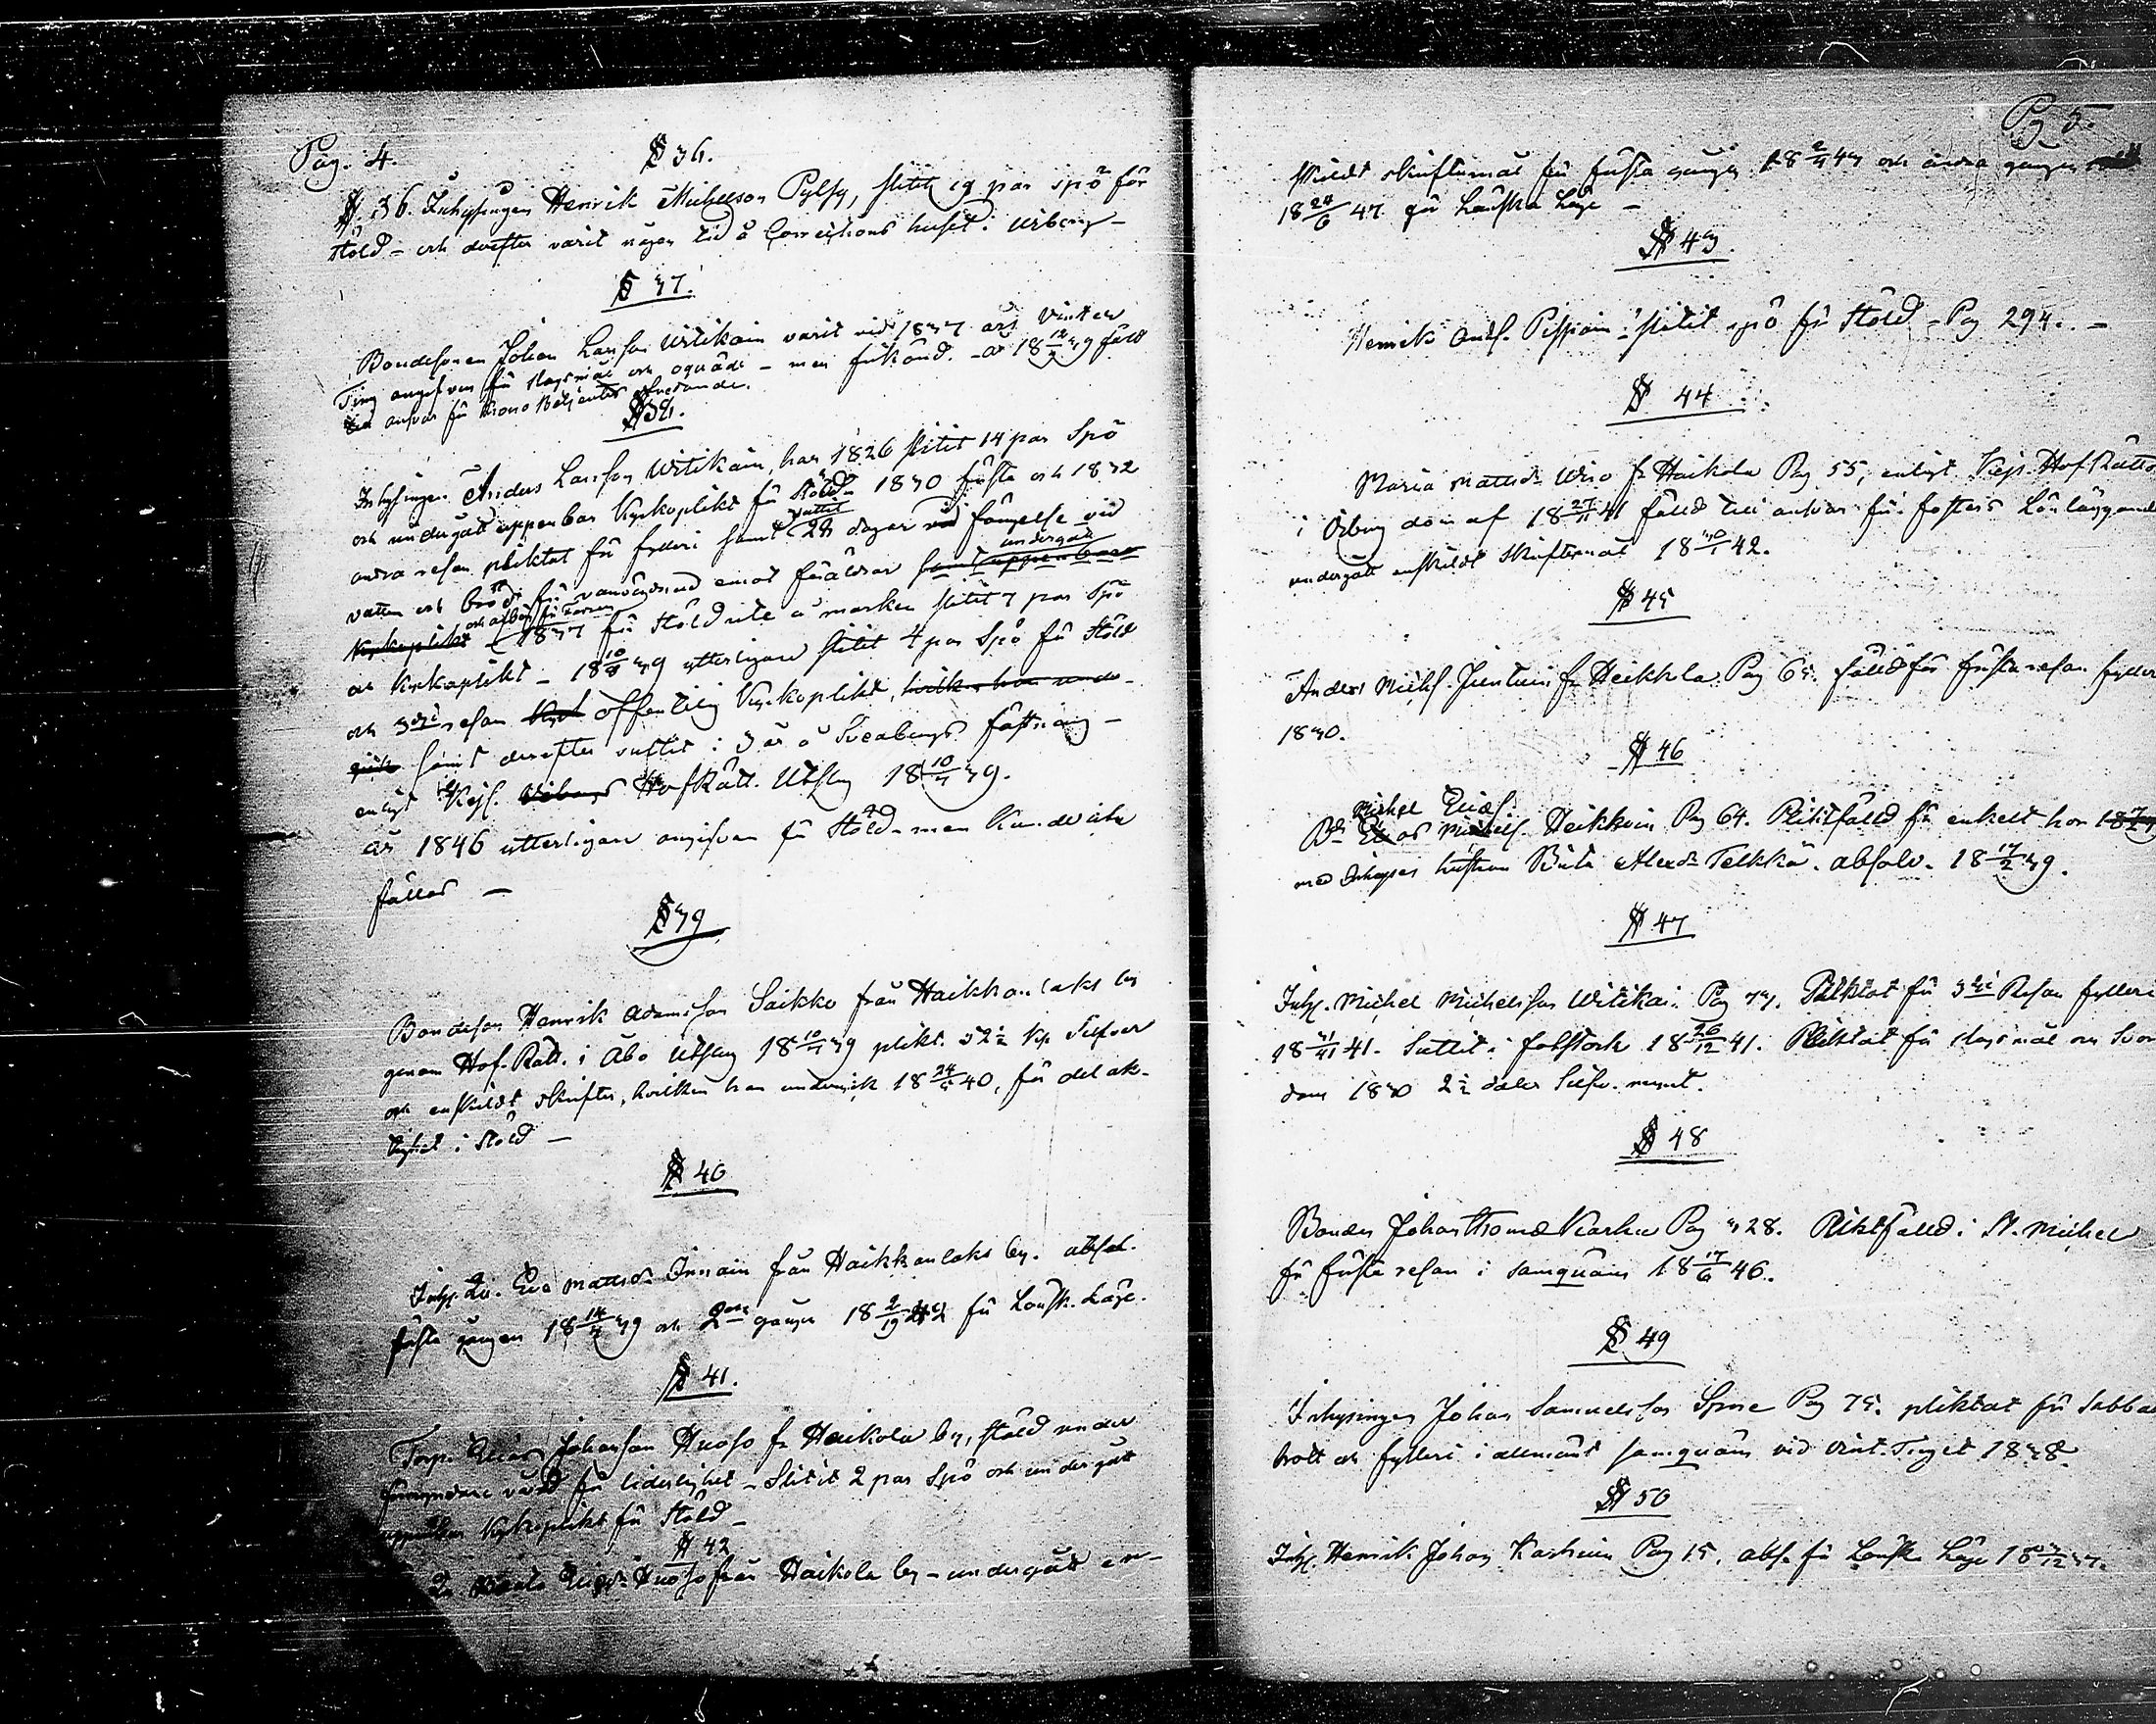 Pag. 4.
§ 36.
§. 36. Inhysingen Henrik Michelsson Pylsy, slitit 19 par spö för
stöld – och derefter varit någon tid å Corrections huset i Wiborg –
§ 37.
Bondesonen Johan Larsson Witikain varit vid 1837 års Vinter
Ting angifven för slagsmål och oqväde – men frikänd. – år 18 12/7 39 fälld
till ansvar för Krono Betjentes
§ 38.
Inhysingen Anders Larsson Witikain, har 1826 slitit 14 par Spö
och undergått uppenbar Kyrkoplikt för Stöld – 1830 första och 1832
andra resan pliktat för fylleri samt suttit 28 dagar vid fängelse vid
vatten och bröd för vanvördnad emot föräldrar samt uppenbar undergått
Kyrkoplikt och afbön för – 1837 för Stöld ute å marken slitit 7 par Spö
och Kyrkoplikt – 18 10/8 39 ytterligare slitit 4 par Spö för Stöld
och 3dje resan Kyrk offentlig Kyrkoplikt, hvilken han under-
gick samt derefter suttit i 3 år å Sveaborgs fästning –
enligt Kejs. Wiborgs HofRätt. Utslag 18 10/7 39.
år 1846 ytterligare angifven för Stöld – men Kunde icke
fällas –
§ 39
Bondeson Henrik Adamsson Saikko från Haikkanlaks by
genom Hof-Rätt. i Åbo Utslag 18 10/7 39 plikt. 52½ Kop Silfver
och enskildt skrifter, hvilken han undergick 18 24/5 40, för delak-
tighet i stöld –
§ 40
Inhys. Qv. Eva Mattsdr Innain från Haikkanlaks by. absol.
första gången 18 14/7 39 och 2dra gången 18 2/19 42 för Lönsk. Läge.
§ 41.
Torp. Elias Johansson Huoso fr. Haikola by, ställd under
förmyndare vård för liderlighet – Slitit 2 par Spö och undergått
uppenbar Kyrkoplikt för Stöld –
§ 42
Huoso från Haikola by – undergått en-
Pag 5.
skildt skriftermål för första gången 18 2/4 43 och andra gången
18 24/6 47 för Lönska Läge –
§ 43.
Henrik And.s. Pispain: slitit spö för Stöld – Pag 294. –
§ 44
Maria Mattsdr Wiro fr. Haikola Pag 55, enligt Kejs. HofRätts
i Wiborg dom af 18 27/11 41 fälld till ansvar för fosters Lönläggande
undergått enskildt Skriftermål 18 30/1 42.
§ 45
Anders Michs. Juntuin fr. Heikkola Pag 65. fälld för första resan fylleri
1830.
§ 46
Michel Eliæs.
Bd. Elias Michels. Heikkein Pag 64. Pliktfälld för enkelt hor
med Inhyses hustrun Brita Alexdr Telkkä. absolv. 18 17/2 39.
§ 47
Inhys. Michel Michelsson Witikain Pag 73. Pliktat för 3dje Resan fylleri
18 31/11 41. Suttit i fotstock 18 26/12 41. Pliktat för slagsmål och Svor-
dom 1830 2½ daler Silfv. mynt.
§ 48
Bonden Johan Thomæ Karhu Pag 328. Pliktfälld i St. Michel
för första resan i samquäm 18 17/6 46.
§ 49
Inhysingen Johan Samuelsson Pag 75. pliktat för Sabbats
brott och fylleri i allmänt samquäm vid Vint. Tinget 1838.
§ 50
Inhys. Henrik Johans. Karhuin Pag 15, abs. för Lönska Läge